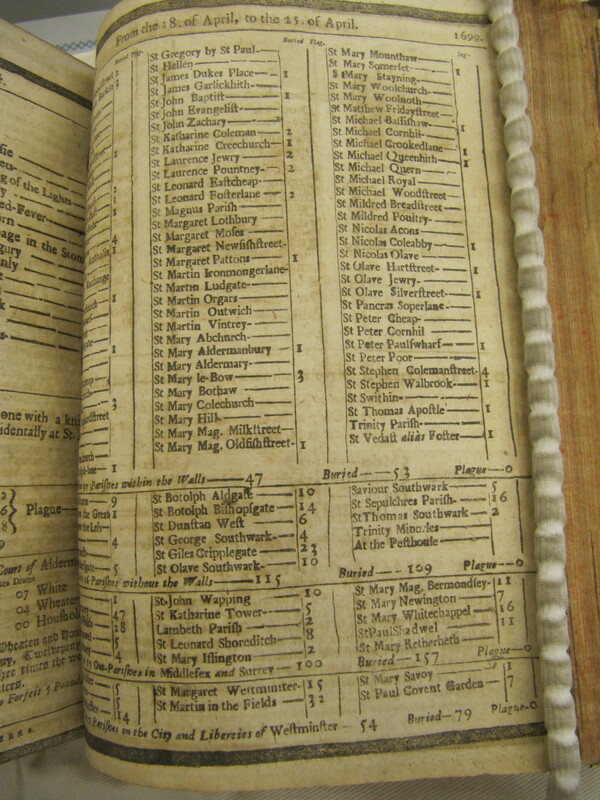 From the 18. of April, to the 25. of April. 1699.
Buried Plag. Buried Plag.
St Gregory by St Paul-
St Hellen
St James Dukes Place 1
St James Garlickhith-
St John Baptist 1
St John Evangelist
St John Zachary
St Katharine Coleman 2
St Katharine Creechurch 1
St Laurence Jewry 2
St Laurence Pountney- 2
St Leonard Eastcheap
St Leonard Fosterlane 2
St Magnus Parish
St Margaret Lothbury
St Margaret Moses
St Margaret Newfishstreet-
St Margaret Pattons 1
St Martin Ironmongerlane-
St Martin Ludgate
St Martin Orgars
St Martin Outwich
St Martin Vintrey-
St Mary Abchurch
St Mary Aldermanbury 1
St Mary Aldermary-
St Mary le-Bow 3
St Mary Bothaw
St Mary Colechurch
St Mary Hill
St Mary Mag. Milkstreet-
St Mary Mag. Oldfishstreet- 1
St Mary Mounthaw
St Mary Somerset 1
St Mary Stayning-
St Mary Woolchurch
St Mary Woolnoth
St Matthew Fridaystreet
St Michael Bassishaw
St Michael Cornhil 1
St Michael Crookedlane
St Michael Queenhith 1
St Michael Quern
St Michael Royal
St Michael Woodstreet
St Mildred Breadstreet
St Mildred Poultry
St Nicolas Acons
St Nicolas Coleabby 1
St Nicolas Olave
St Olave Hartstreet 1
St Olave Jewry-
St Olave Silverstreet 1
St Pancras Soperlane-
St Peter Cheap
St Peter Cornhil
St Peter Paulswharf 1
St Peter Poor
St Stephen Colemanstreet- 4
St Stephen Walbrook 1
St Swithin
St Thomas Apostle 1
Trinity Parish
St Vedast alias Foster 1
Parishes within the Walls 47 Buried 53 Plague-0
St Botolph Aldgate 10
St Botolph Bishopsgate 14
St Dunstan West 6
St George Southwark 4
St Giles Cripplegate 23
St Olave Southwark 10
Saviour Southwark 5
St Sepulchres Parish- 16
St Thomas Southwark 2
Trinity Minories
At the Pesthouse
16 Parishes without the Walls 115 Buried 109 Plague-0
St John Wapping 10
St Katharine Tower 5
Lambeth Parish 2
St Leonard Shoreditch 8
St Mary Islington 2
St Mary Mag. Bermondsey- 11
St Mary Newington 7
St Mary Whitechappel 16
St Paul Shadwel 11
St Mary Retherheth
Out-Parishes in Middlesex and Surrey 100 Buried 157 Plague-0
St Margaret Westminster- 15
St Martin in the Fields 32
St Mary Savoy 1
St Paul Covent Garden 7
Parishes in the City and Liberties of Westminster 54 Buried-79 Plague-0